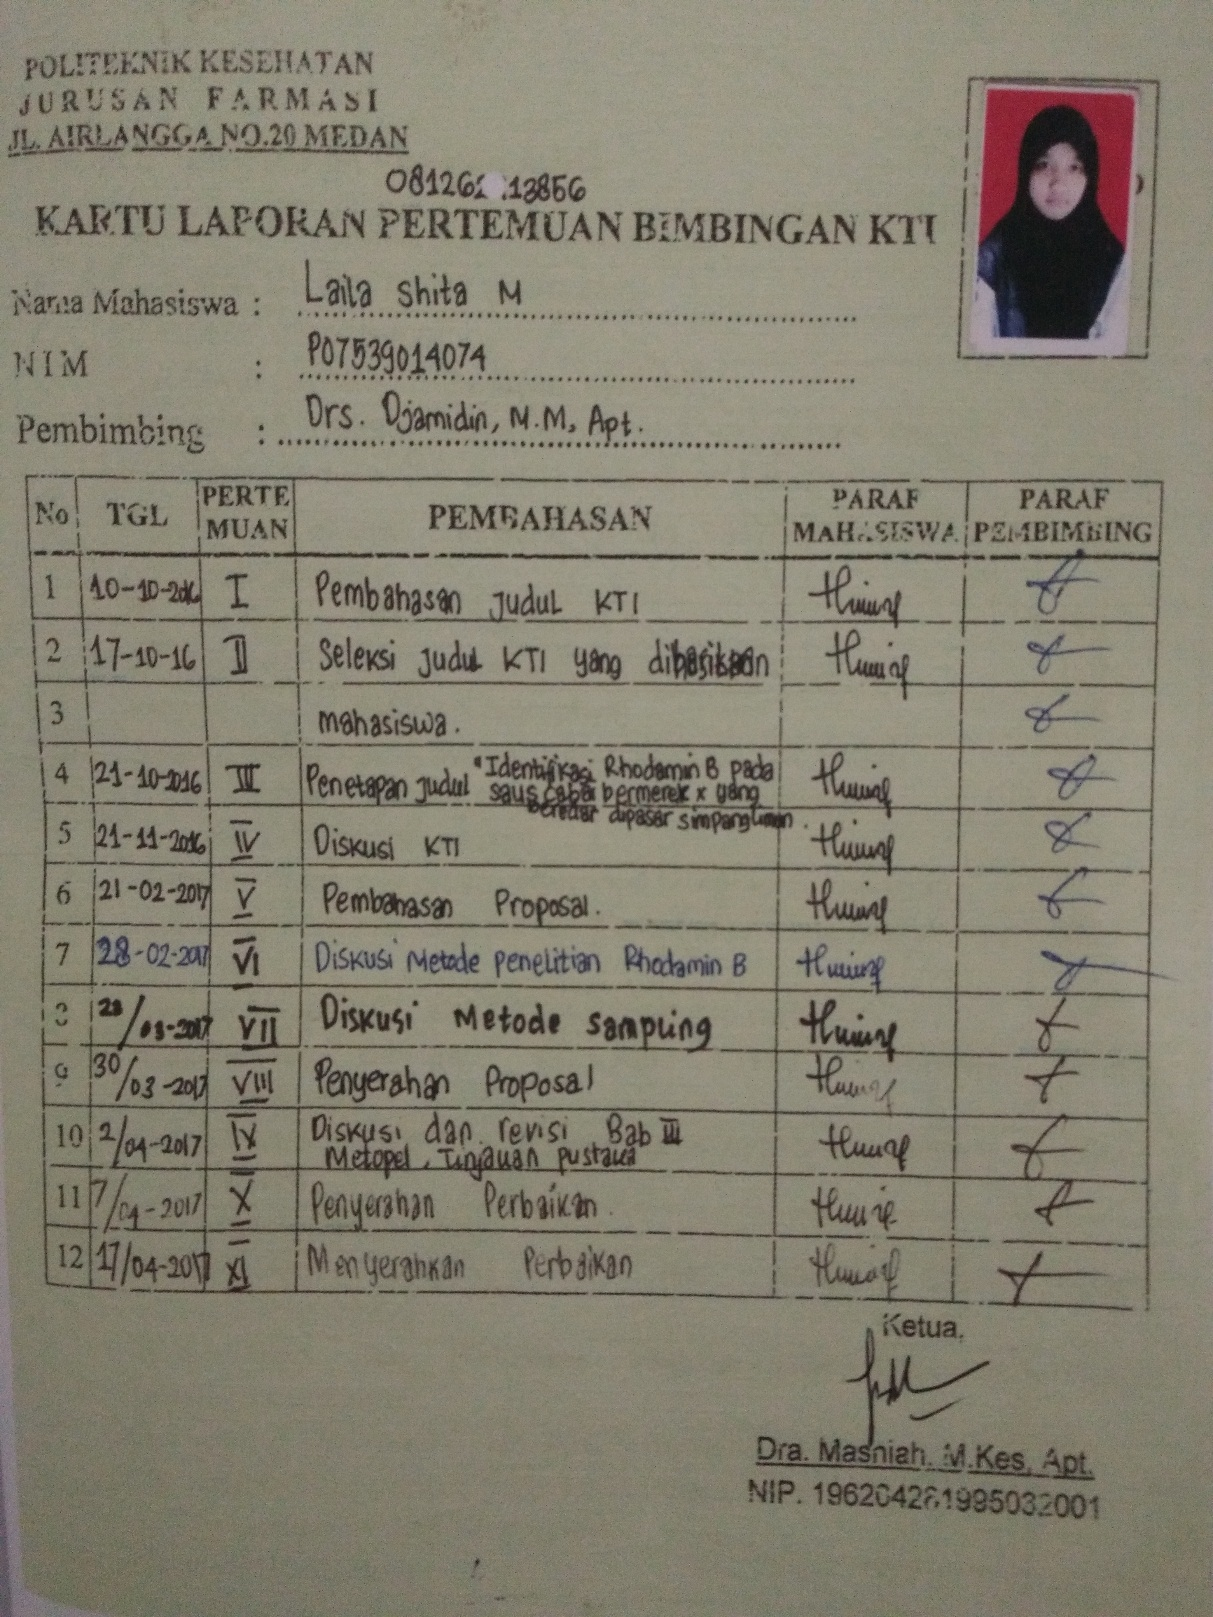 POLITEKNIK KESEHATAN
JURUSAN FARMASI
JL. AIRLANGGA NO.20 MEDAN
KARTU LAPORAN PERTEMUAN BIMBINGAN KTI
Nama Mahasiswa : Laila Shita M
NIM : P07539014074
Pembimbing : Drs. Djamidin, M.M, Apt.
No TGL PERTEMUAN PEMBAHASAN PARAF MAHASISWA PARAF PEMBIMBING
1 10-10-2016 I Pembahasan Judul KTI
2 17-10-16 II Seleksi Judul KTI yang
3 mahasiswa.
4 21-10-2016 III Penetapan Judul "Identifikasi Rhodamin B pada
saus cabai bermerek x yang
beredar dipasar simpanglimun.
5 21-11-2016 IV Diskusi KTI
6 21-02-2017 V Pembahasan Proposal.
7 28-02-2017 VI Diskusi Metode penelitian Rhodamin B
8 28/03-2017 VII Diskusi Metode sampling
9 30/03-2017 VIII Penyerahan Proposal
10 2/04-2017 IX Diskusi dan revisi Bab III
Metopel, Tinjauan pustaka
11 7/04-2017 X Penyerahan Perbaikan.
12 17/04-2017 XI Menyerahkan Perbaikan
Ketua,
Dra. Masniah, M.Kes, Apt.
NIP. 196204281995032001